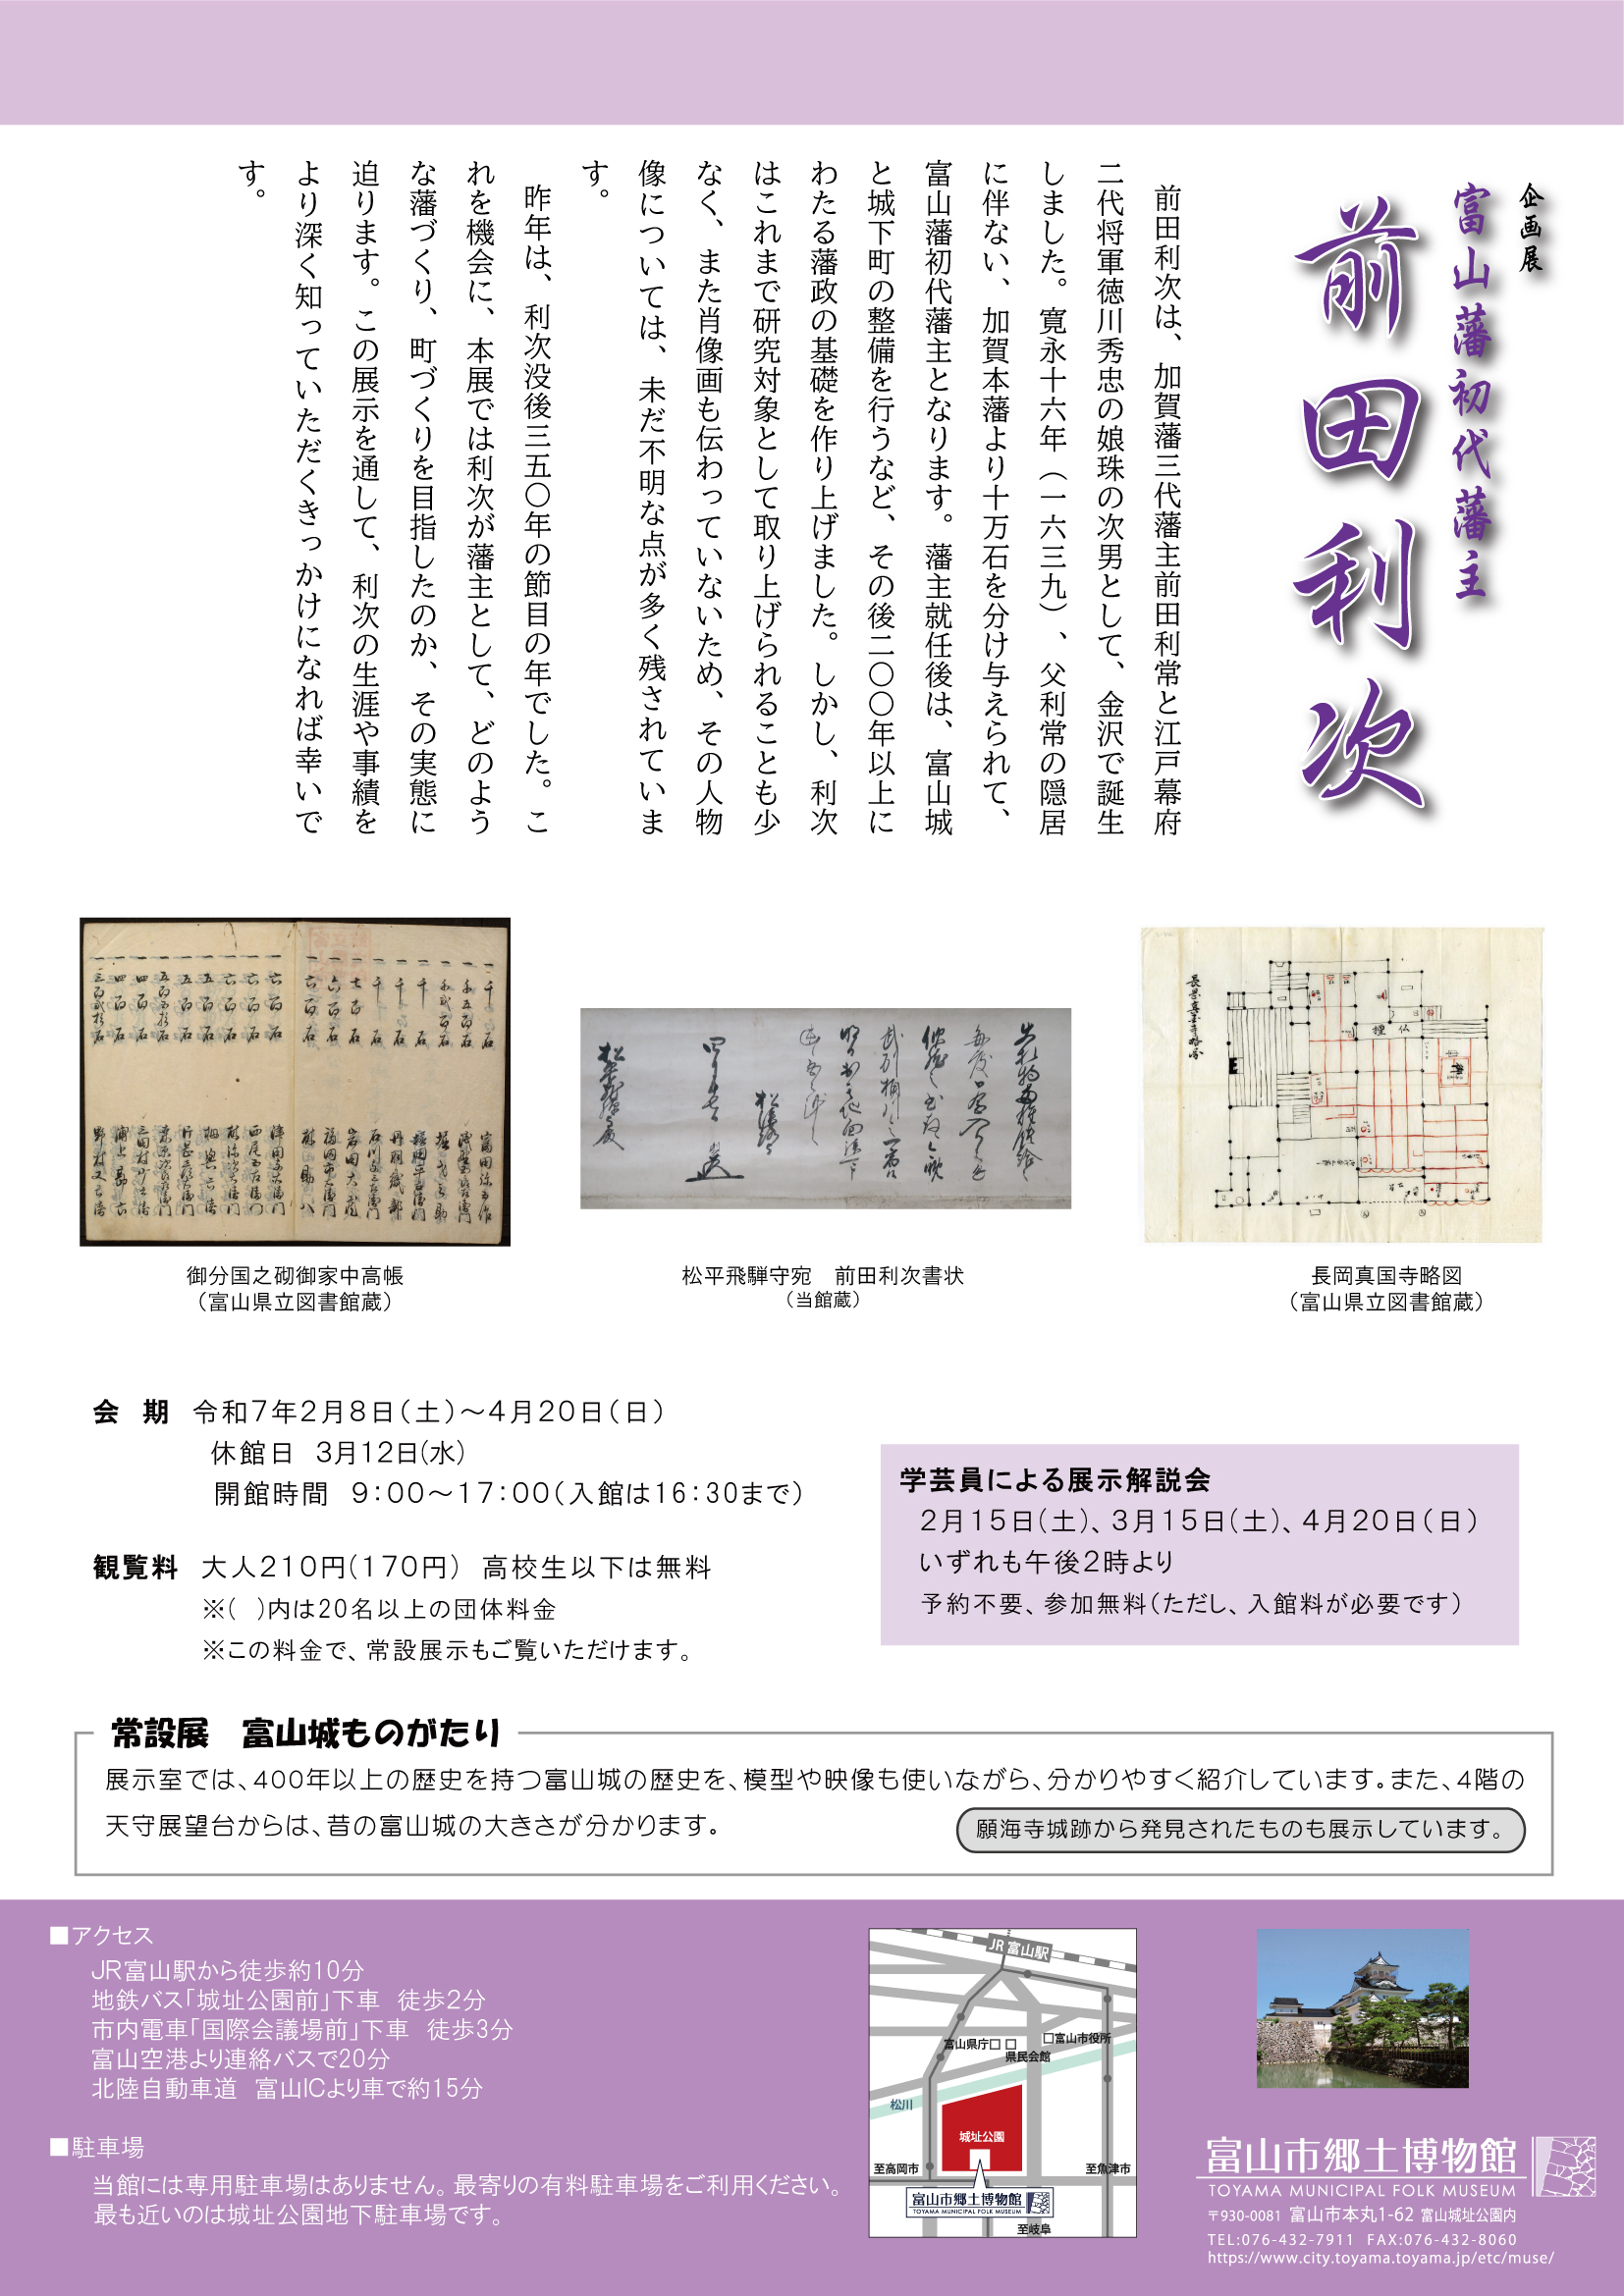 企画展
富山藩初代藩主
前田利次
前田利次は、加賀藩三代藩主前田利常と江戸幕府
二代将軍徳川秀忠の娘珠の次男として、金沢で誕生
しました。寛永十六年（一六三九）、父利常の隠居
に伴ない、加賀本藩より十万石を分け与えられて、
富山藩初代藩主となります。藩主就任後は、富山城
と城下町の整備を行うなど、その後二〇〇年以上に
わたる藩政の基礎を作り上げました。しかし、利次
はこれまで研究対象として取り上げられることも少
なく、また肖像画も伝わっていないため、その人物
像については、未だ不明な点が多く残されていま
す。
昨年は、利次没後三五〇年の節目の年でした。こ
れを機会に、本展では利次が藩主として、どのよう
な藩づくり、町づくりを目指したのか、その実態に
迫ります。この展示を通して、利次の生涯や事績を
より深く知っていただくきっかけになれば幸いで
す。
御分国之砌御家中高帳
（富山県立図書館蔵）
松平飛騨守宛　前田利次書状
（当館蔵）
長岡真国寺略図
（富山県立図書館蔵）
会　期　令和7年2月8日（土）～4月20日（日）
休館日　3月12日（水）
開館時間　9：00～17：00（入館は16：30まで）
観覧料　大人210円（170円）　高校生以下は無料
※（　）内は20名以上の団体料金
※この料金で、常設展示もご覧いただけます。
学芸員による展示解説会
2月15日（土）、3月15日（土）、4月20日（日）
いずれも午後2時より
予約不要、参加無料（ただし、入館料が必要です）
常設展　富山城ものがたり
展示室では、400年以上の歴史を持つ富山城の歴史を、模型や映像も使いながら、分かりやすく紹介しています。また、4階の
天守展望台からは、昔の富山城の大きさが分かります。
願海寺城跡から発見されたものも展示しています。
■アクセス
JR富山駅から徒歩約10分
地鉄バス「城址公園前」下車　徒歩2分
市内電車「国際会議場前」下車　徒歩3分
富山空港より連絡バスで20分
北陸自動車道　富山ICより車で約15分
■駐車場
当館には専用駐車場はありません。最寄りの有料駐車場をご利用ください。
最も近いのは城址公園地下駐車場です。
JR 富山駅
富山県庁□
□
県民会館
□富山市役所
松川
城址公園
至高岡市
至魚津市
富山市郷土博物館
TOYAMA MUNICIPAL FOLK MUSEUM
至岐阜
富山市郷土博物館
TOYAMA MUNICIPAL FOLK MUSEUM
〒930-0081 富山市本丸1-62 富山城址公園内
TEL:076-432-7911 FAX:076-432-8060
https://www.city.toyama.toyama.jp/etc/muse/